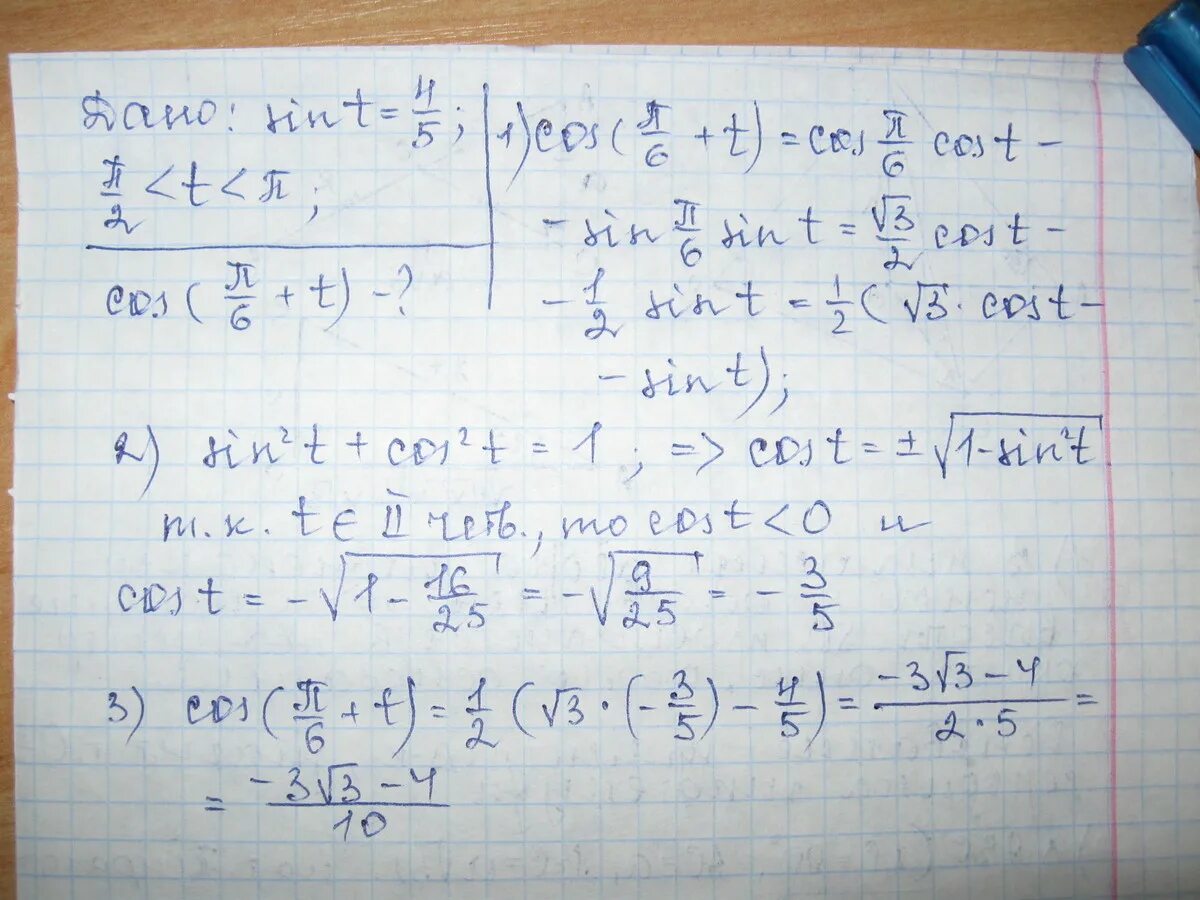 Дано: sin t = 4/5;
π/2 < t < π;
cos(π/6 + t) - ?
1) cos(π/6 + t) = cos π/6 cos t -
- sin π/6 sin t = √3/2 cos t -
- 1/2 sin t = 1/2 (√3 · cos t -
- sin t);
2) sin² t + cos² t = 1 ; => cos t = ± √(1 - sin² t)
т.к. t ∈ II четв., то cos t < 0 и
cos t = - √(1 - 16/25) = - √(9/25) = - 3/5
3) cos(π/6 + t) = 1/2 (√3 · (- 3/5) - 4/5) = (-3√3 - 4)/(2 · 5) =
= (-3√3 - 4)/10